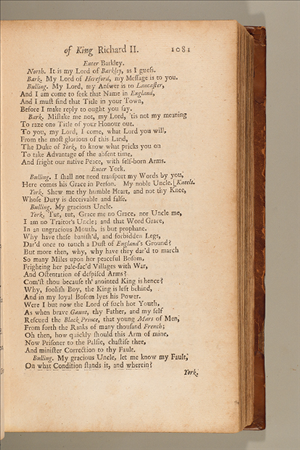 of King Richard II. 1081
Enter Barkley.
North. It is my Lord of Barkley, as I guess.
Bark. My Lord of Hereford, my Message is to you.
Bulling. My Lord, my Answer is to Lancaster,
And I am come to seek that Name in England,
And I must find that Title in your Town,
Before I make reply to ought you say.
Bark. Mistake me not, my Lord, 'tis not my meaning
To raze one Title of your Honour out.
To you, my Lord, I come, what Lord you will,
From the most glorious of this Land,
The Duke of York, to know what pricks you on
To take Advantage of the absent time,
And fright our native Peace, with self-born Arms.
Enter York.
Bulling. I shall not need transport my Words by you,
Here comes his Grace in Person. My noble Uncle. [Kneels.
York. Shew me thy humble Heart, and not thy Knee,
Whose Duty is deceivable and false.
Bulling. My gracious Uncle.
York. Tut, tut, Grace me no Grace, nor Uncle me,
I am no Traitor's Uncle; and that Word Grace,
In an ungracious Mouth, is but prophane.
Why have these banish'd, and forbidden Legs,
Dar'd once to touch a Dust of England's Ground?
But more then, why, why have they dar'd to march
So many Miles upon her peaceful Bosom,
Frighting her pale-fac'd Villages with War,
And Ostentation of despised Arms?
Com'st thou because th' anointed King is hence?
Why, foolish Boy, the King is left behind,
And in my loyal Bosom lyes his Power.
Were I but now the Lord of such hot Youth,
As when brave Gaunt, thy Father, and my self
Rescued the Black Prince, that young Mars of Men,
From forth the Ranks of many thousand French;
Oh then, how quickly should this Arm of mine,
Now Prisoner to the Palsie, chastise thee,
And minister Correction to thy Fault.
Bulling. My gracious Uncle, let me know my Fault,
On what Condition stands it, and wherein?
York.